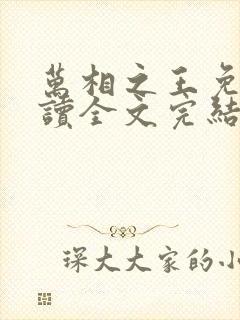 萬相之王免
讀全文完結
琛大大家的小